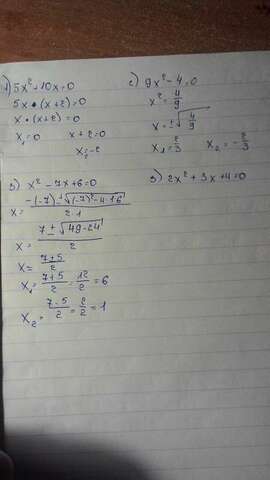 1) 5x²+10x=0
5x•(x+2)=0
x•(x+2)=0
x₁=0 x+2=0
x₂=-2
c) 9x²-4=0
x²=4/9
x=±√4/9
x₁=2/3 x₂=-2/3
3) x²-7x+6=0
x=-(-7)±√(-7)²-4·1·6/2·1
x=7±√49-24/2
x=7±5/2
x₁=7+5/2=12/2=6
x₂=7-5/2=2/2=1
3) 2x²+3x+4=0